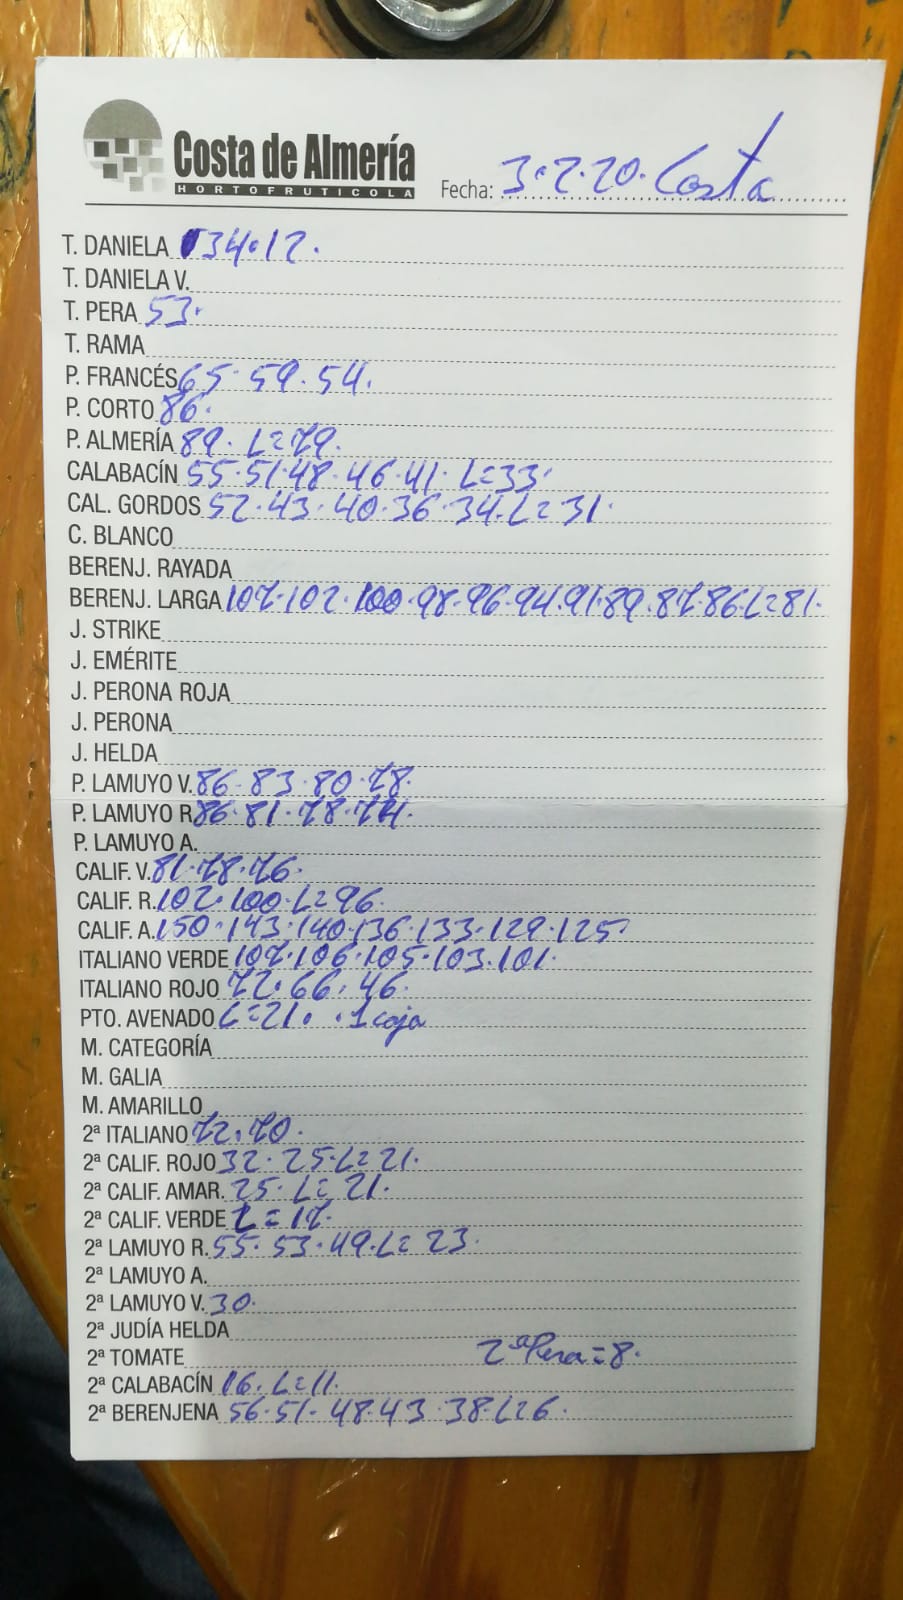 Costa de Almería
HORTOFRUTICOLA
Fecha: 3·2·20· Costa
T. DANIELA 34·12·
T. DANIELA V.
T. PERA 53·
T. RAMA
P. FRANCÉS 65·59·54·
P. CORTO 86·
P. ALMERÍA 89·L=79·
CALABACÍN 55·51·48·46·41·L=33·
CAL. GORDOS 52·43·40·36·34·L=31·
C. BLANCO
BERENJ. RAYADA
BERENJ. LARGA 107·102·100·98·96·94·91·89·87·86·L=81·
J. STRIKE
J. EMÉRITE
J. PERONA ROJA
J. PERONA
J. HELDA
P. LAMUYO V. 86·83·80·78·
P. LAMUYO R. 86·81·78·74·
P. LAMUYO A.
CALIF. V. 81·78·76·
CALIF. R. 102·100·L=96·
CALIF. A. 150·143·140·136·133·129·125·
ITALIANO VERDE 107·106·105·103·101·
ITALIANO ROJO 72·66·46·
PTO. AVENADO L=21··1 caja
M. CATEGORÍA
M. GALIA
M. AMARILLO
2ª ITALIANO 72·70·
2ª CALIF. ROJO 32·25·L=21·
2ª CALIF. AMAR. 25·L=21·
2ª CALIF. VERDE L=17·
2ª LAMUYO R. 55·53·49·L=23·
2ª LAMUYO A.
2ª LAMUYO V. 30·
2ª JUDÍA HELDA
2ª TOMATE 2ª Pera=8·
2ª CALABACÍN 16·L=11·
2ª BERENJENA 56·51·48·43·38·L=6·